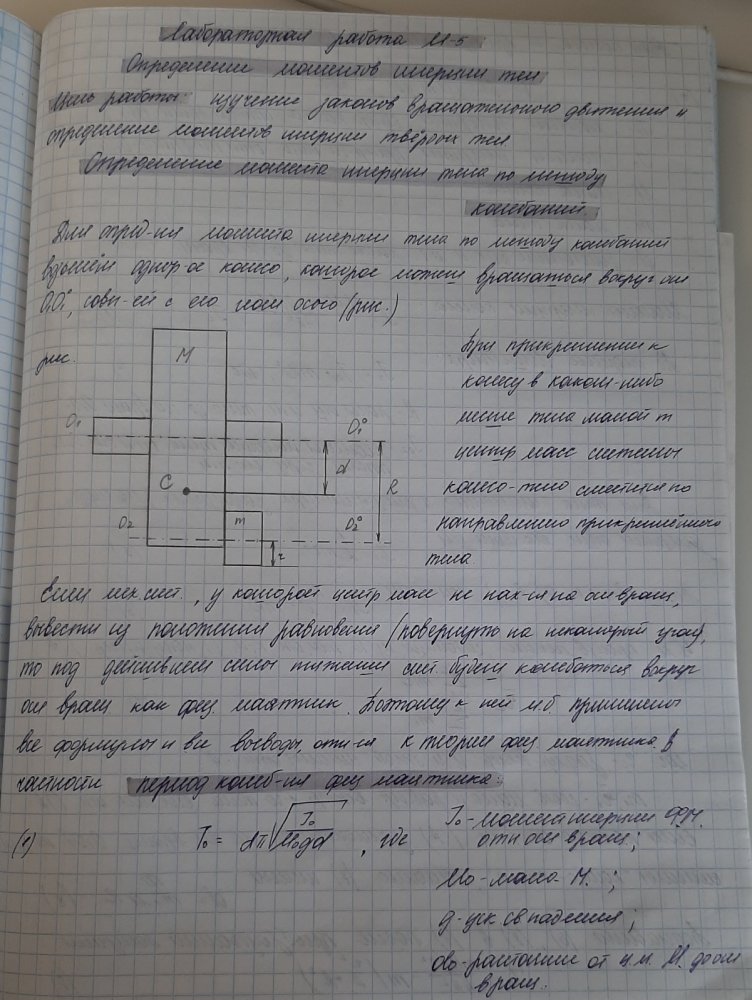 Лабораторная работа М-5
Определение моментов инерции тел
Цель работы: изучение законов вращательного движения и
определение моментов инерции твёрдых тел.
Определение момента инерции тела по методу
колебаний.
Для опред-ия момента инерции тела по методу колебаний
возьмём однор-ое колесо, которое может вращаться вокруг оси
O₁O₁°, совп-ей с его геом осью (рис.)
рис.
При прикреплении к
колесу в каком-либо
месте тела массой m
центр масс системы
колесо-тело сместится по
направлению прикреплённого
тела.
M
O₁
O₁°
d
R
C
O₂
m
O₂°
r
Если мех. сист., у которой центр масс не нах-ся на оси вращ,
вывести из положения равновесия (повернуть на некоторый угол),
то под действием силы тяжести сист. будет колебаться вокруг
оси вращ как физ. маятник. Поэтому к ней м.б. применены
все формулы и все выводы, отн-ся к теории физ маятника. В
частности период колеб-ия физ маятника:
(1) T₀ = 2π√(J₀/M₀gd) , где
J₀ - момент инерции Ф.М.
отн оси вращ.;
M₀ - масса М. ;
g - уск св падения ;
d₀ - расстояние от ц.м. М. до оси
вращ.